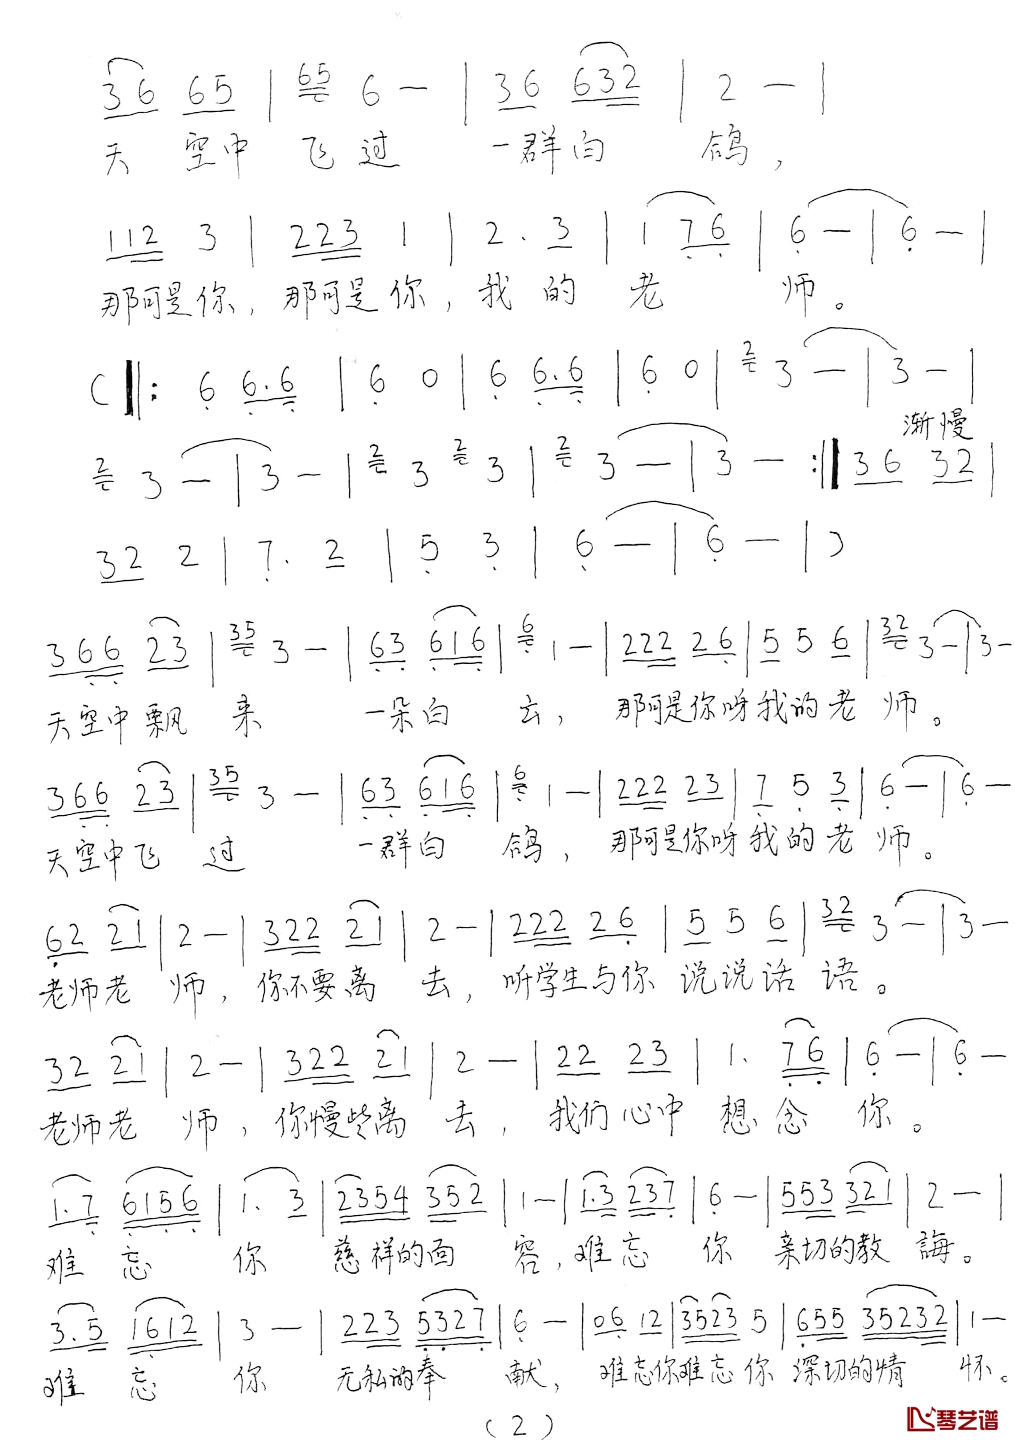 36 65 | 65 6 — | 36 632 | 2 — |
天 空中 飞过 一群白 鸽，
112 3 | 223 1 | 2 . 3 | 1 76 | 6 — | 6 — |
那可是你，那可是你，我的 老 师。
( ‖: 6 6.6 | 6 0 | 6 6.6 | 6 0 | 2 3 — | 3 — |
渐慢
2 3 — | 3 — | 2 3 2 3 | 2 3 — | 3 — :‖ 36 32 |
32 2 | 7. 2 | 5 3 | 6 — | 6 — | )
366 23 | 35 3 — | 63 616 | 6 1 — | 222 26 | 5 5 6 | 32 3 — | 3 —
天空中飘 来 一朵白 云，那可是你呀我的老 师。
366 23 | 35 3 — | 63 616 | 6 1 — | 222 23 | 7 5 3 | 6 — | 6 —
天空中飞 过 一群白 鸽，那可是你呀我的老 师。
62 21 | 2 — | 322 21 | 2 — | 222 26 | 5 5 6 | 32 3 — | 3 —
老师老 师，你不要离 去，听学生与你 说说话 语。
32 21 | 2 — | 322 21 | 2 — | 22 23 | 1. 76 | 6 — | 6 —
老师老 师，你慢些离 去，我们心中 想 念 你。
1.7 6156 | 1. 3 | 2354 352 | 1 — | 1.3 237 | 6 — | 553 321 | 2 — |
难 忘 你 慈祥的面 容，难忘 你 亲切的教 誨。
3.5 1612 | 3 — | 223 5327 | 6 — | 06 12 | 3523 5 | 655 35232 | 1 —
难 忘 你 无私的奉 献，难忘你难忘你 深切的情 怀。
(2)
琴艺谱